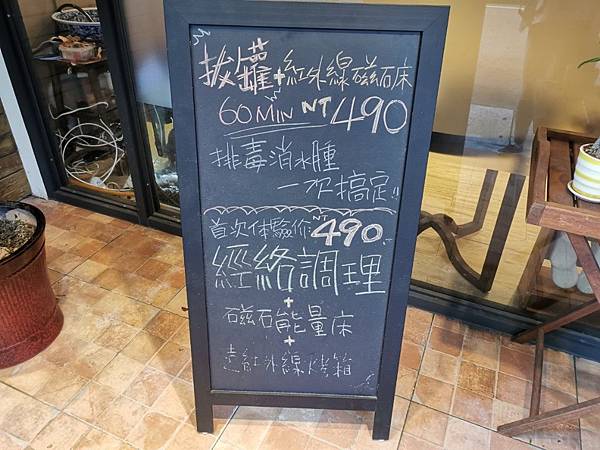 拔罐+紅外線磁石床
60MIN NT490
排毒消水腫
一次搞定!!
首次体驗价NT490
經絡調理
+
磁石能量床
+
遠紅外線烤箱